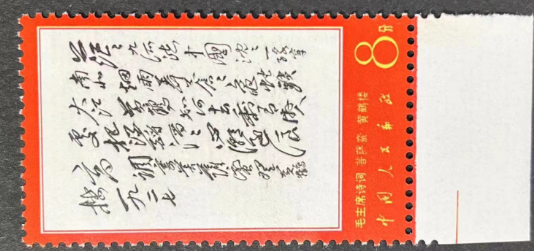 茫茫九派流中国沉沉一线穿
南北烟雨莽苍苍龟蛇锁
大江黄鹤知何去剩有游人
处把酒酹滔滔心潮逐浪
高 调寄菩萨蛮登黄鹤
楼
一九二七
8分
毛主席诗词 菩萨蛮 黄鹤楼
中国人民邮政